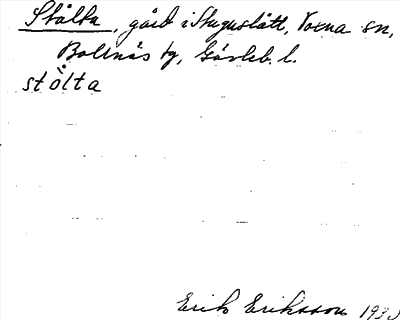 Stålta, gård i Stuguslått, Voxna sn,
Bollnäs tg, Gävleb. l.
stòlta
Erik Eriksson 193